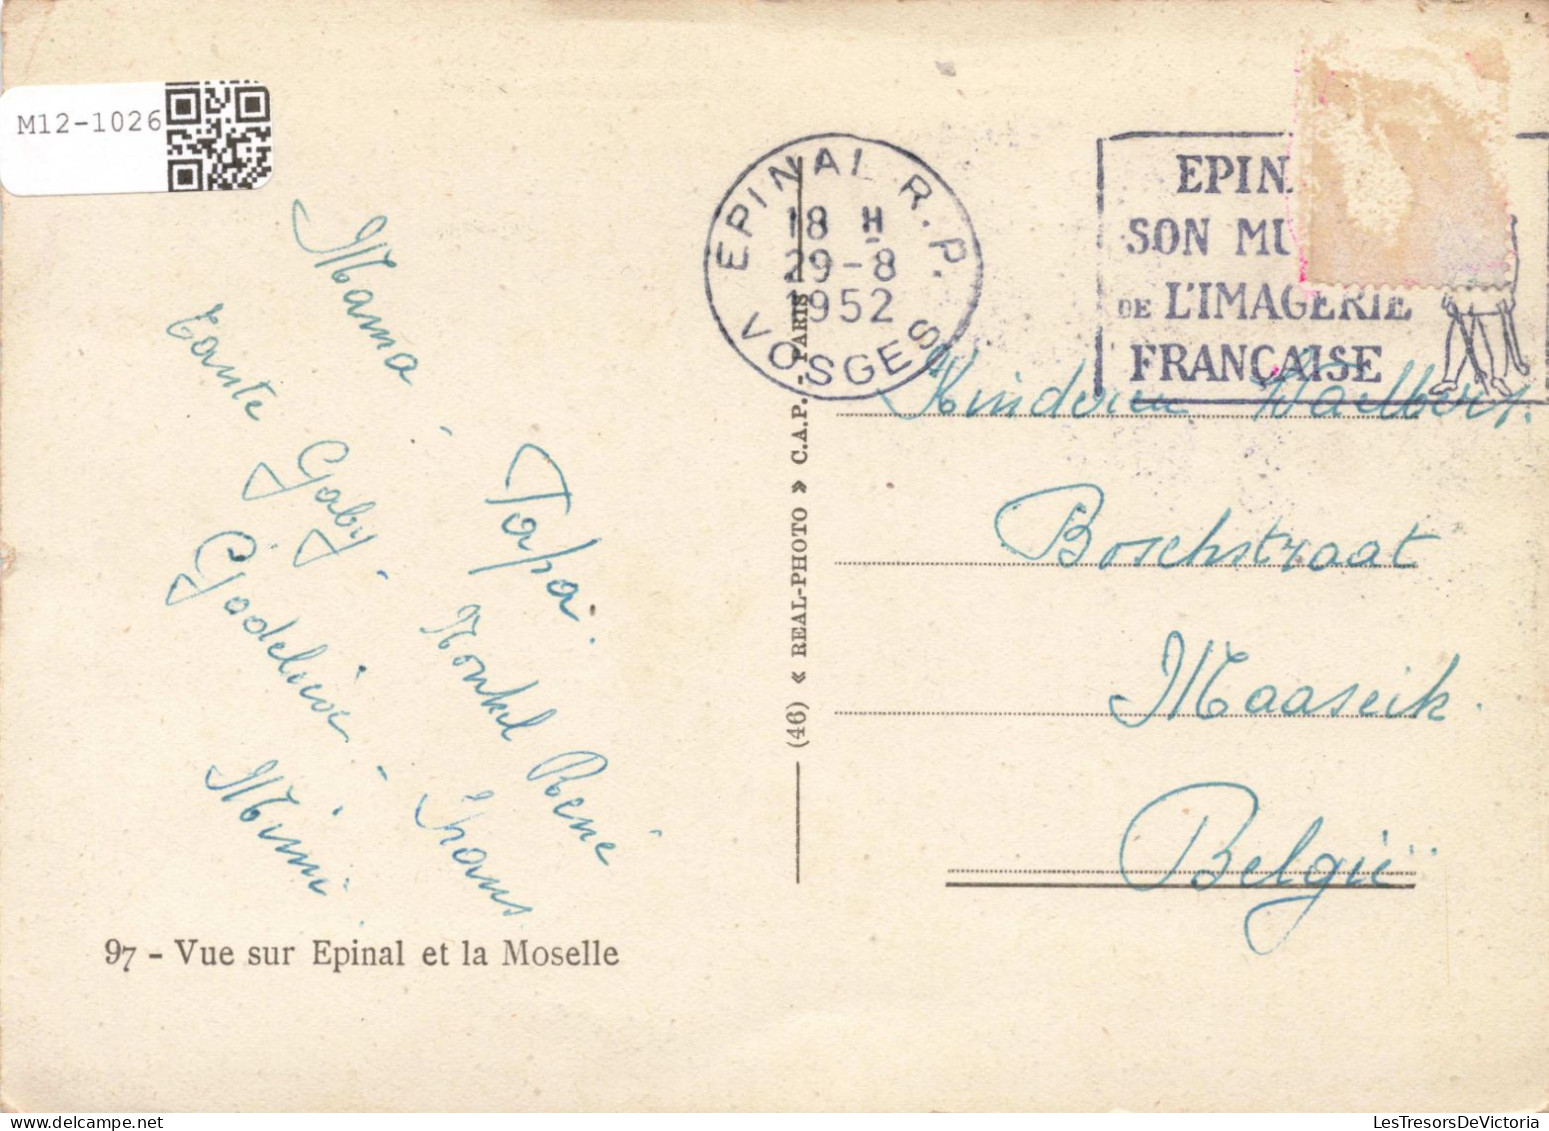 M12-1026
EPINAL R.P.
18 H
29-8
1952
VOSGES
EPIN
SON MU
DE L'IMAGERIE
FRANÇAISE
Mama - Papa.
Tante Gaby - Nonkel René
Godelieve - Frans
Mimi.
Kinderen
Boschstraat
Maaseik.
België
(46) « REAL-PHOTO » C.A.P. - PARIS
97 - Vue sur Epinal et la Moselle
LesTresorsDeVictoria